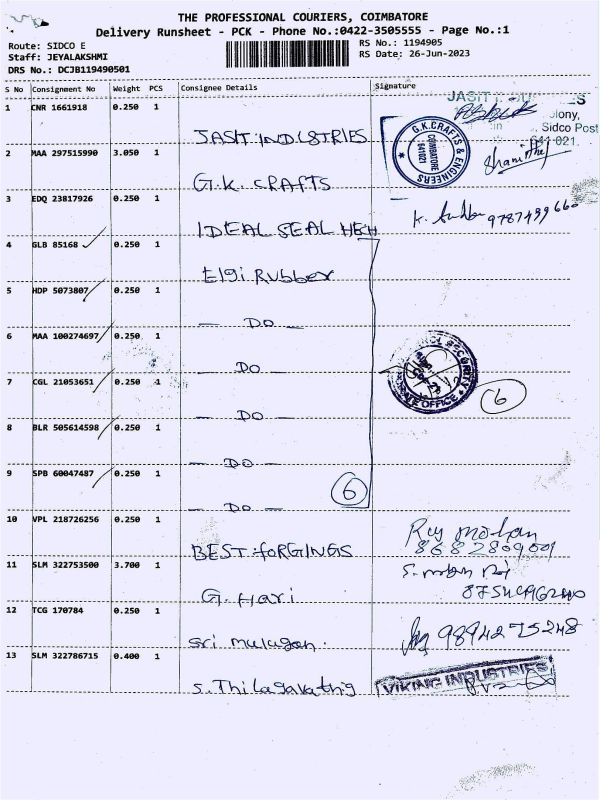 THE PROFESSIONAL COURIERS, COIMBATORE
Delivery Runsheet - PCK - Phone No.:0422-3505555 - Page No.:1
Route: SIDCO E
Staff: JEYALAKSHMI
DRS No.: DCJB119490501
RS No.: 1194905
RS Date: 26-Jun-2023
S No Consignment No Weight PCS Consignee Details Signature
1 CNR 1661918 0.250 1 JASIT INDUSTRIES
2 MAA 297515990 3.050 1 G.K. CRAFTS
3 EDQ 23817926 0.250 1 IDEAL SEAL MECH
4 GLB 85168 0.250 1 Elgi Rubber
5 HDP 5073807 0.250 1 — DO —
6 MAA 100274697 0.250 1 — DO —
7 CGL 21053651 0.250 1 — DO —
8 BLR 505614598 0.250 1 — DO —
9 SPB 60047487 0.250 1 — DO —
10 VPL 218726256 0.250 1 BEST FORGINGS
11 SLM 322753500 3.700 1 G. Hari
12 TCG 170784 0.250 1 Sri mulagan.
13 SLM 322786715 0.400 1 S. Thilagavathy
olony,
Sidco Post
641 021.
G.K.CRAFTS & ENGINEERS
COIMBATORE
641021
9787499660
SECURITY
OFFICE
6
6
Raj mohan
8682809001
9894275248
VIKING INDUSTRIES